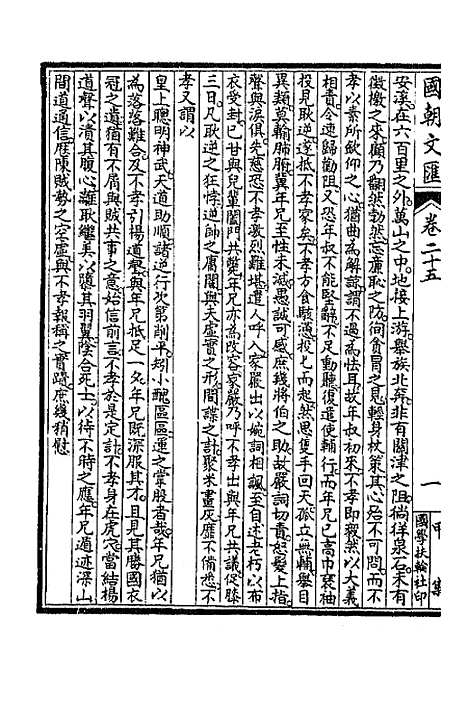 國朝文匯 卷二十五 一 甲集 國學扶輪社印
安溪在六百里之外萬山之中地接上游舉族北奔非有關津之阻徜徉泉石未有
徵檄之來顧乃翻然勃然忘廉恥之防徇貪冒之見輕身杖策其心殆不可問而不
孝以素所欽仰之心猶曲為解諒謂不過為怯耳故年叔初來不孝即毅然以大義
相責令速歸勸阻又恐年叔不能堅辭不足動聽復遣使輔行而年兄已高巾褒袖
投見耿逆遂抵不孝家矣不孝方食駭愚投匕而起然思隻手回天孤立無輔舉目
異類莫輸肺腑冀年兄至性未泯愚誠可感庶幾將伯之助故嚴詞切責怒髮上指
聲與淚俱先慈恐不孝激烈難堪遣人呼入家嚴出以婉詞相韻至自述老朽以布
衣受封已甘與兒輩闔門共斃年兄亦為改容家嚴乃呼不孝出與年兄共議促膝
三日凡耿逆之狂悖逆帥之庸闇與夫虛實之形間諜之計聚米畫灰靡不備悉不
孝又謂以
皇上聰明神武天道助順諸逆行次第削平矧小醜區區運之掌股者哉年兄猶以
為落落難合及不孝引揚道聲與年兄抵足一夕年兄既深服其才且見其勝國衣
冠之遺猶有不屑與賊共事之意始信前言不孝於是定計不孝身在虎穴當結楊
道聲以潰其腹心離耿繼美以隳其羽翼陰合死士以待不時之應年兄遁迹深山
間道通信歷陳賊勢之空虛與不孝報稱之實蹟庶幾稍慰